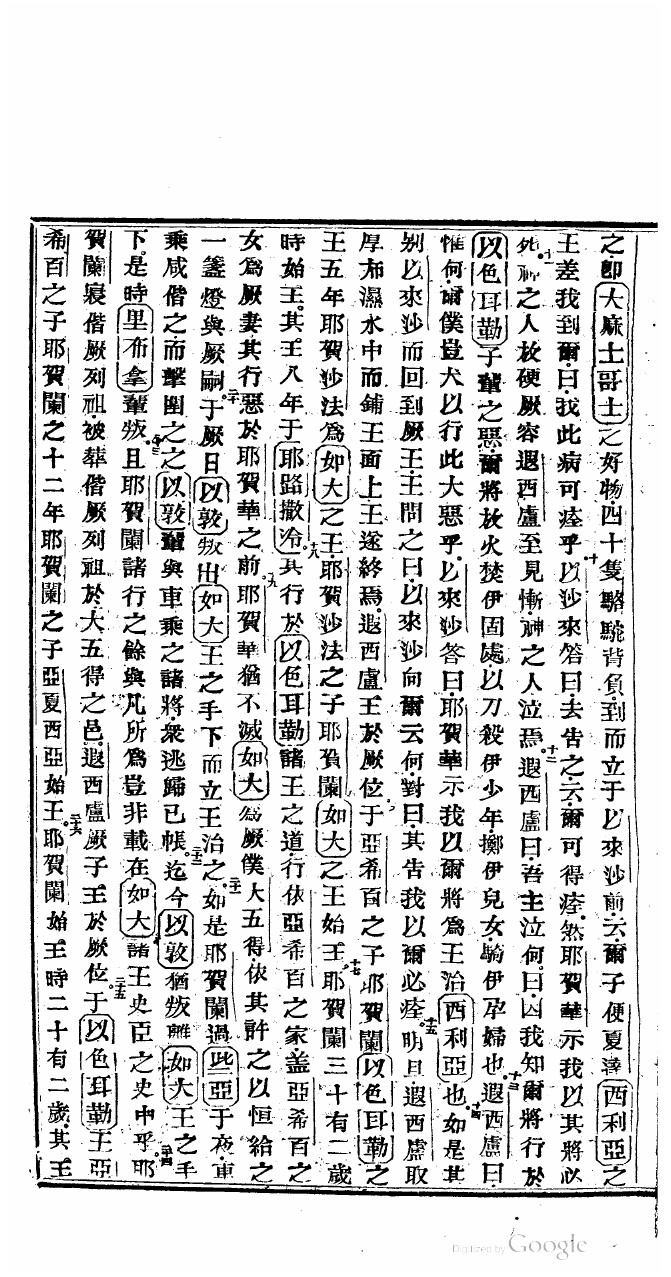 之卽大麻士哥士之好物四十隻駱駝背負到而立于以來沙前云爾子便夏達西利亞之
王差我到爾曰我此病可痊乎十以沙來答曰去告之云爾可得痊然耶賀華示我以其將必
死十一神之人放硬厥容遐西盧至見慚神之人泣焉十二遐西盧曰吾主泣何曰因我知爾將行於
以色耳勒子輩之惡爾將放火焚伊固處以刀殺伊少年擲伊兒女騎伊孕婦也十三遐西盧曰
惟何爾僕豈犬以行此大惡乎以來沙答曰耶賀華示我以爾將爲王治西利亞也十四如是其
别以來沙而回到厥王王問之曰以來沙向爾云何對曰其告我以爾必痊十五明旦遐西盧取
厚布濕水中而鋪王面上王遂終焉遐西盧王於厥位于亞希百之子耶賀闌以色耳勒之
王五年耶賀沙法爲如大之王耶賀沙法之子耶賀闌如大之王始王十七耶賀闌三十有二歲
時始王其王八年于耶路撒冷十八其行於以色耳勒諸王之道行依亞希百之家蓋亞希百之
女爲厥妻其行惡於耶賀華之前十九耶賀華猶不滅如大爲厥僕大五得依其許之以恒給之
一盞燈與厥嗣二十于厥日以敦叛出如大王之手下而立王治之二十一如是耶賀闌過些亞于夜車
乘咸偕之而擊圍之之以敦輩與車乘之諸將衆逃歸已帳二十二迄今以敦猶叛離如大王之手
下是時里布拿輩叛二十三且耶賀闌諸行之餘與凡所爲豈非載在如大諸王史臣之史中乎二十四耶
賀闌寢偕厥列祖被葬偕厥列祖於大五得之邑遐西盧厥子王於厥位二十五于以色耳勒王亞
希百之子耶賀闌之十二年耶賀闌之子亞夏西亞始王二十六耶賀闌始王時二十有二歲其王
Digitized by Google